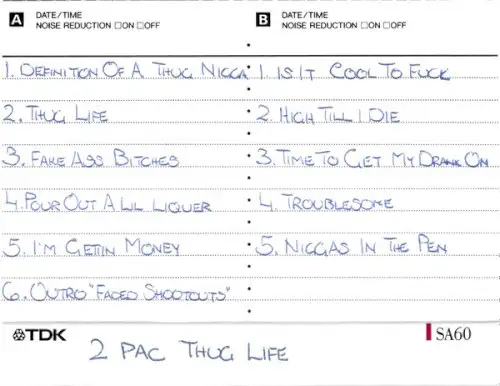 A DATE/TIME
NOISE REDUCTION □ON □OFF
1. DEFINITION OF A THUG NIGGA
2. THUG LIFE
3. FAKE ASS BITCHES
4. POUR OUT A LIL LIQUER
5. I'M GETTIN MONEY
6. OUTRO "FACED SHOOTOUTS"
B DATE/TIME
NOISE REDUCTION □ON □OFF
1. IS IT COOL TO FUCK
2. HIGH TILL I DIE
3. TIME TO GET MY DRANK ON
4. TROUBLESOME
5. NIGGAS IN THE PEN
TDK
SA60
2 PAC THUG LIFE